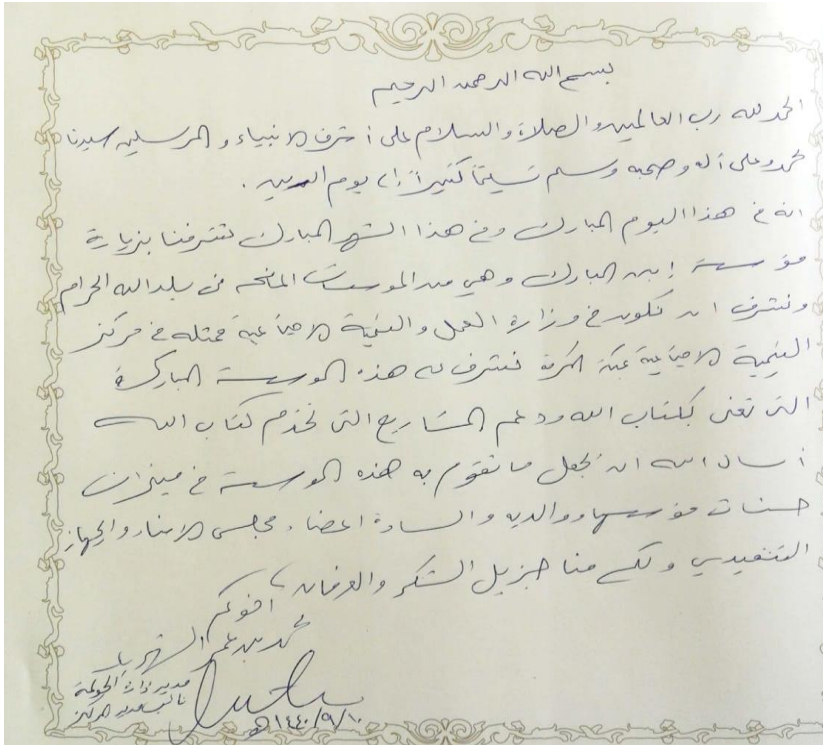 بسم الله الرحمن الرحيم
الحمد لله رب العالمين والصلاة والسلام على أشرف الانبياء و المرسلين سيدنا
محمد وعلى آله وصحبه وسلم تسليماً كثيراً إلى يوم الدين .
انه في هذا اليوم المبارك وفي هذا الشهر المبارك تشرفنا بزيارة
مؤسسة إبن المبارك وهي من المؤسسات المانحه في بلد الله الحرام
ونتشرف ان نكون في وزارة العمل والتنمية الاجتماعية ممثله في مركز
التنمية الاجتماعية بمكة المكرمة نشرف على هذه المؤسسة المباركة
التي تعنى بكتاب الله ودعم المشاريع التي تخدم كتاب الله
أسال الله ان يجعل ما تقوم به هذه المؤسسة في ميزان
حسنات مؤسسها ووالديه والسادة اعضاء مجلس الامناء والجهاز
التنفيذي ولكم منا جزيل الشكر والعرفان ،
اخوكم
محمد بن عمر
مدير
نائب مدير المركز
١٤٤٠/٩/١٠هـ